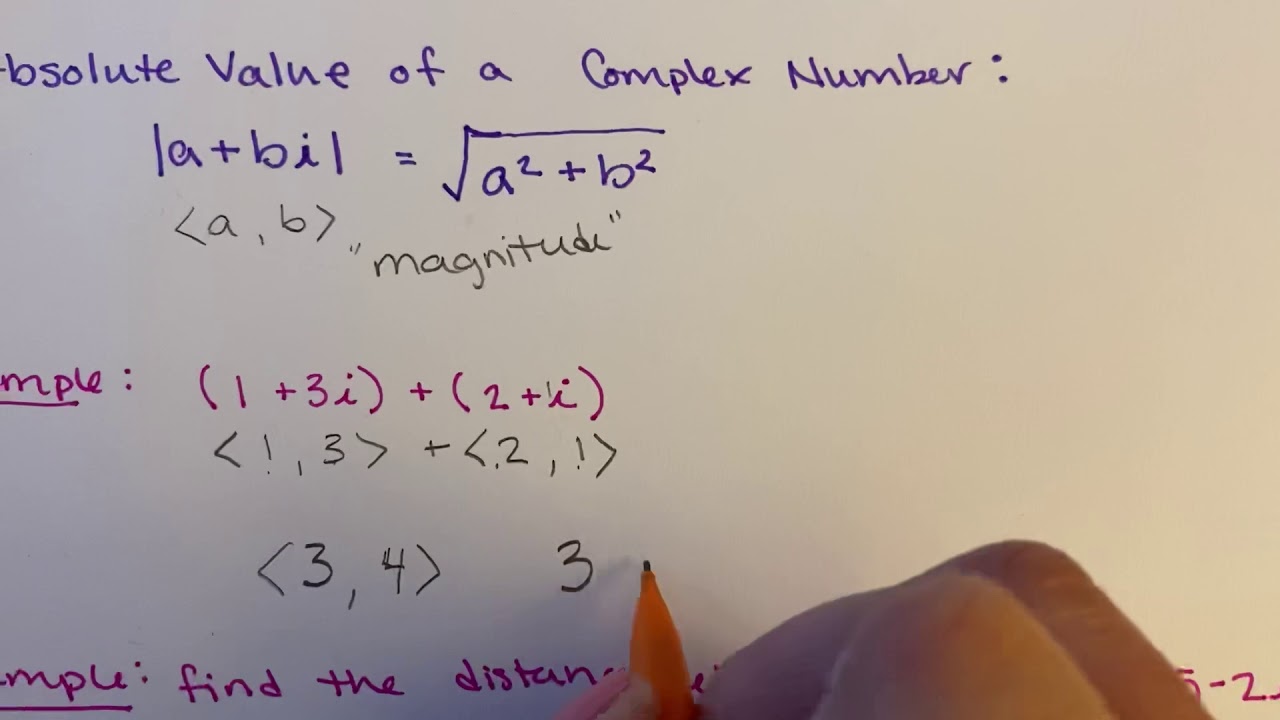 bsolute Value of a Complex Number:
|a+bi| = √a²+b²
<a, b> "magnitude"
mple: (1+3i) + (2+1i)
<1, 3> + <2, 1>
<3, 4> 3
mple: find the 5-2